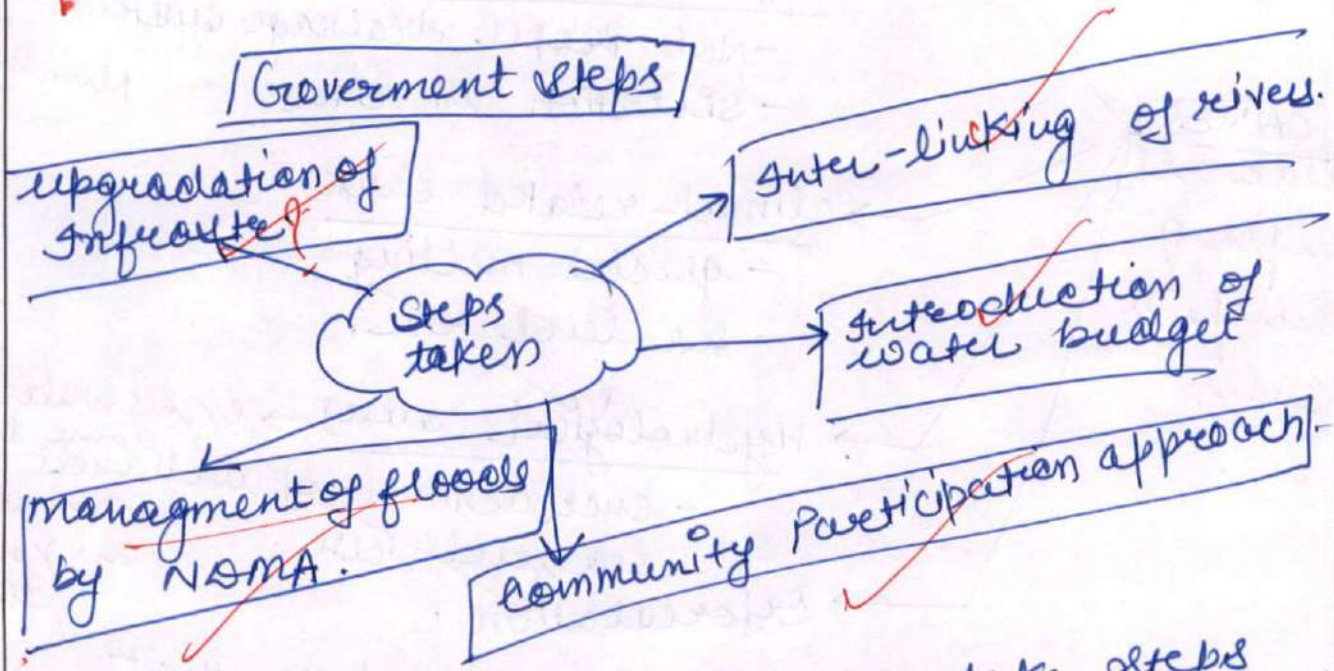 Goverment steps
upgradation of
Inter-linking of rivers.
Steps
taken
Introduction of
water budget
managment of floods
by NDMA.
Community Participation approach.
steps